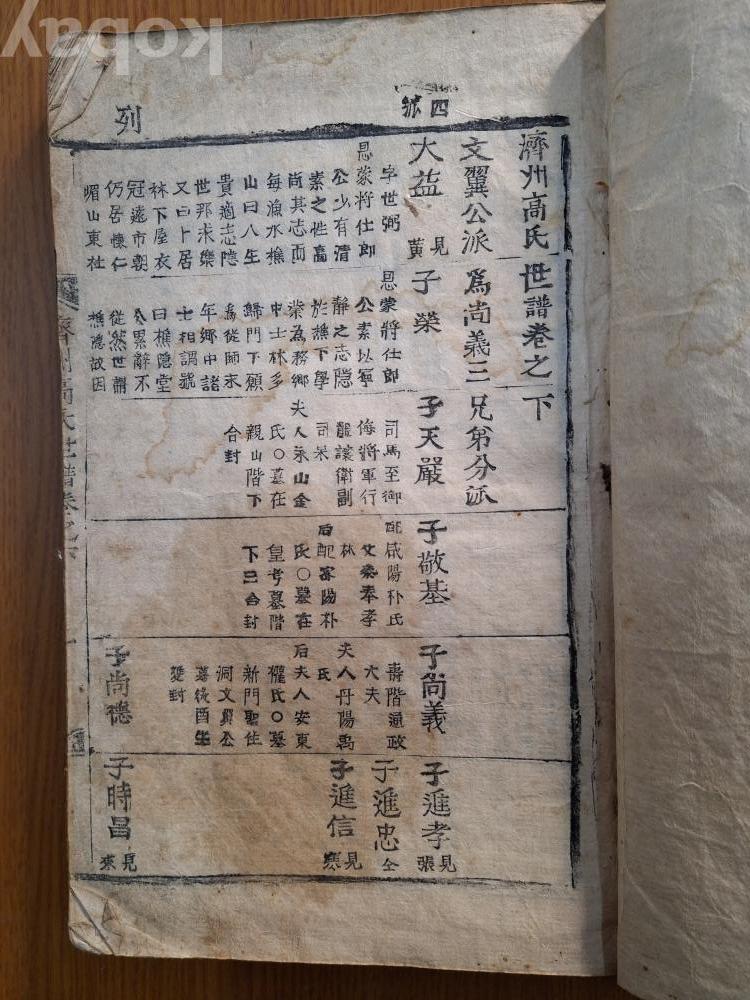 kobay
四派
列
濟州高氏世譜卷之下
文翼公派爲尚義三兄弟分派
大益
見黃
字世弼
忠蒙將仕郎
公少有清
素之性高
尚其志而
每漁水樵
山曰人生
貴適志隱
世邦求樂
又曰卜居
林下屋衣
冠遠市朝
仍居懷仁
嵋山東社
子榮
忠蒙將仕郎
公素以寧
靜之志隱
於樵下學
業爲務鄉
中士林多
歸門下願
爲從師求
年鄉中諸
士相謂號
曰樵隱堂
公累辭不
從然世謂
樵隱故因
子天嚴
司馬至御
侮將軍行
龍讓衛副
司果
夫人永山金
氏〇墓在
親山階下
合封
子敬基
配咸陽朴氏
父參奉孝
林
后配密陽朴
氏〇墓在
皇考墓階
下三合封
子尚義
壽階通政
大夫
夫人丹陽禹
氏
后夫人安東
權氏〇墓
新門聖住
洞文翼公
墓後酉坐
雙封
子進孝
見張
子進忠
仝
子進信
見寒
子尚德
子時昌
見來
濟州高氏世譜卷之下